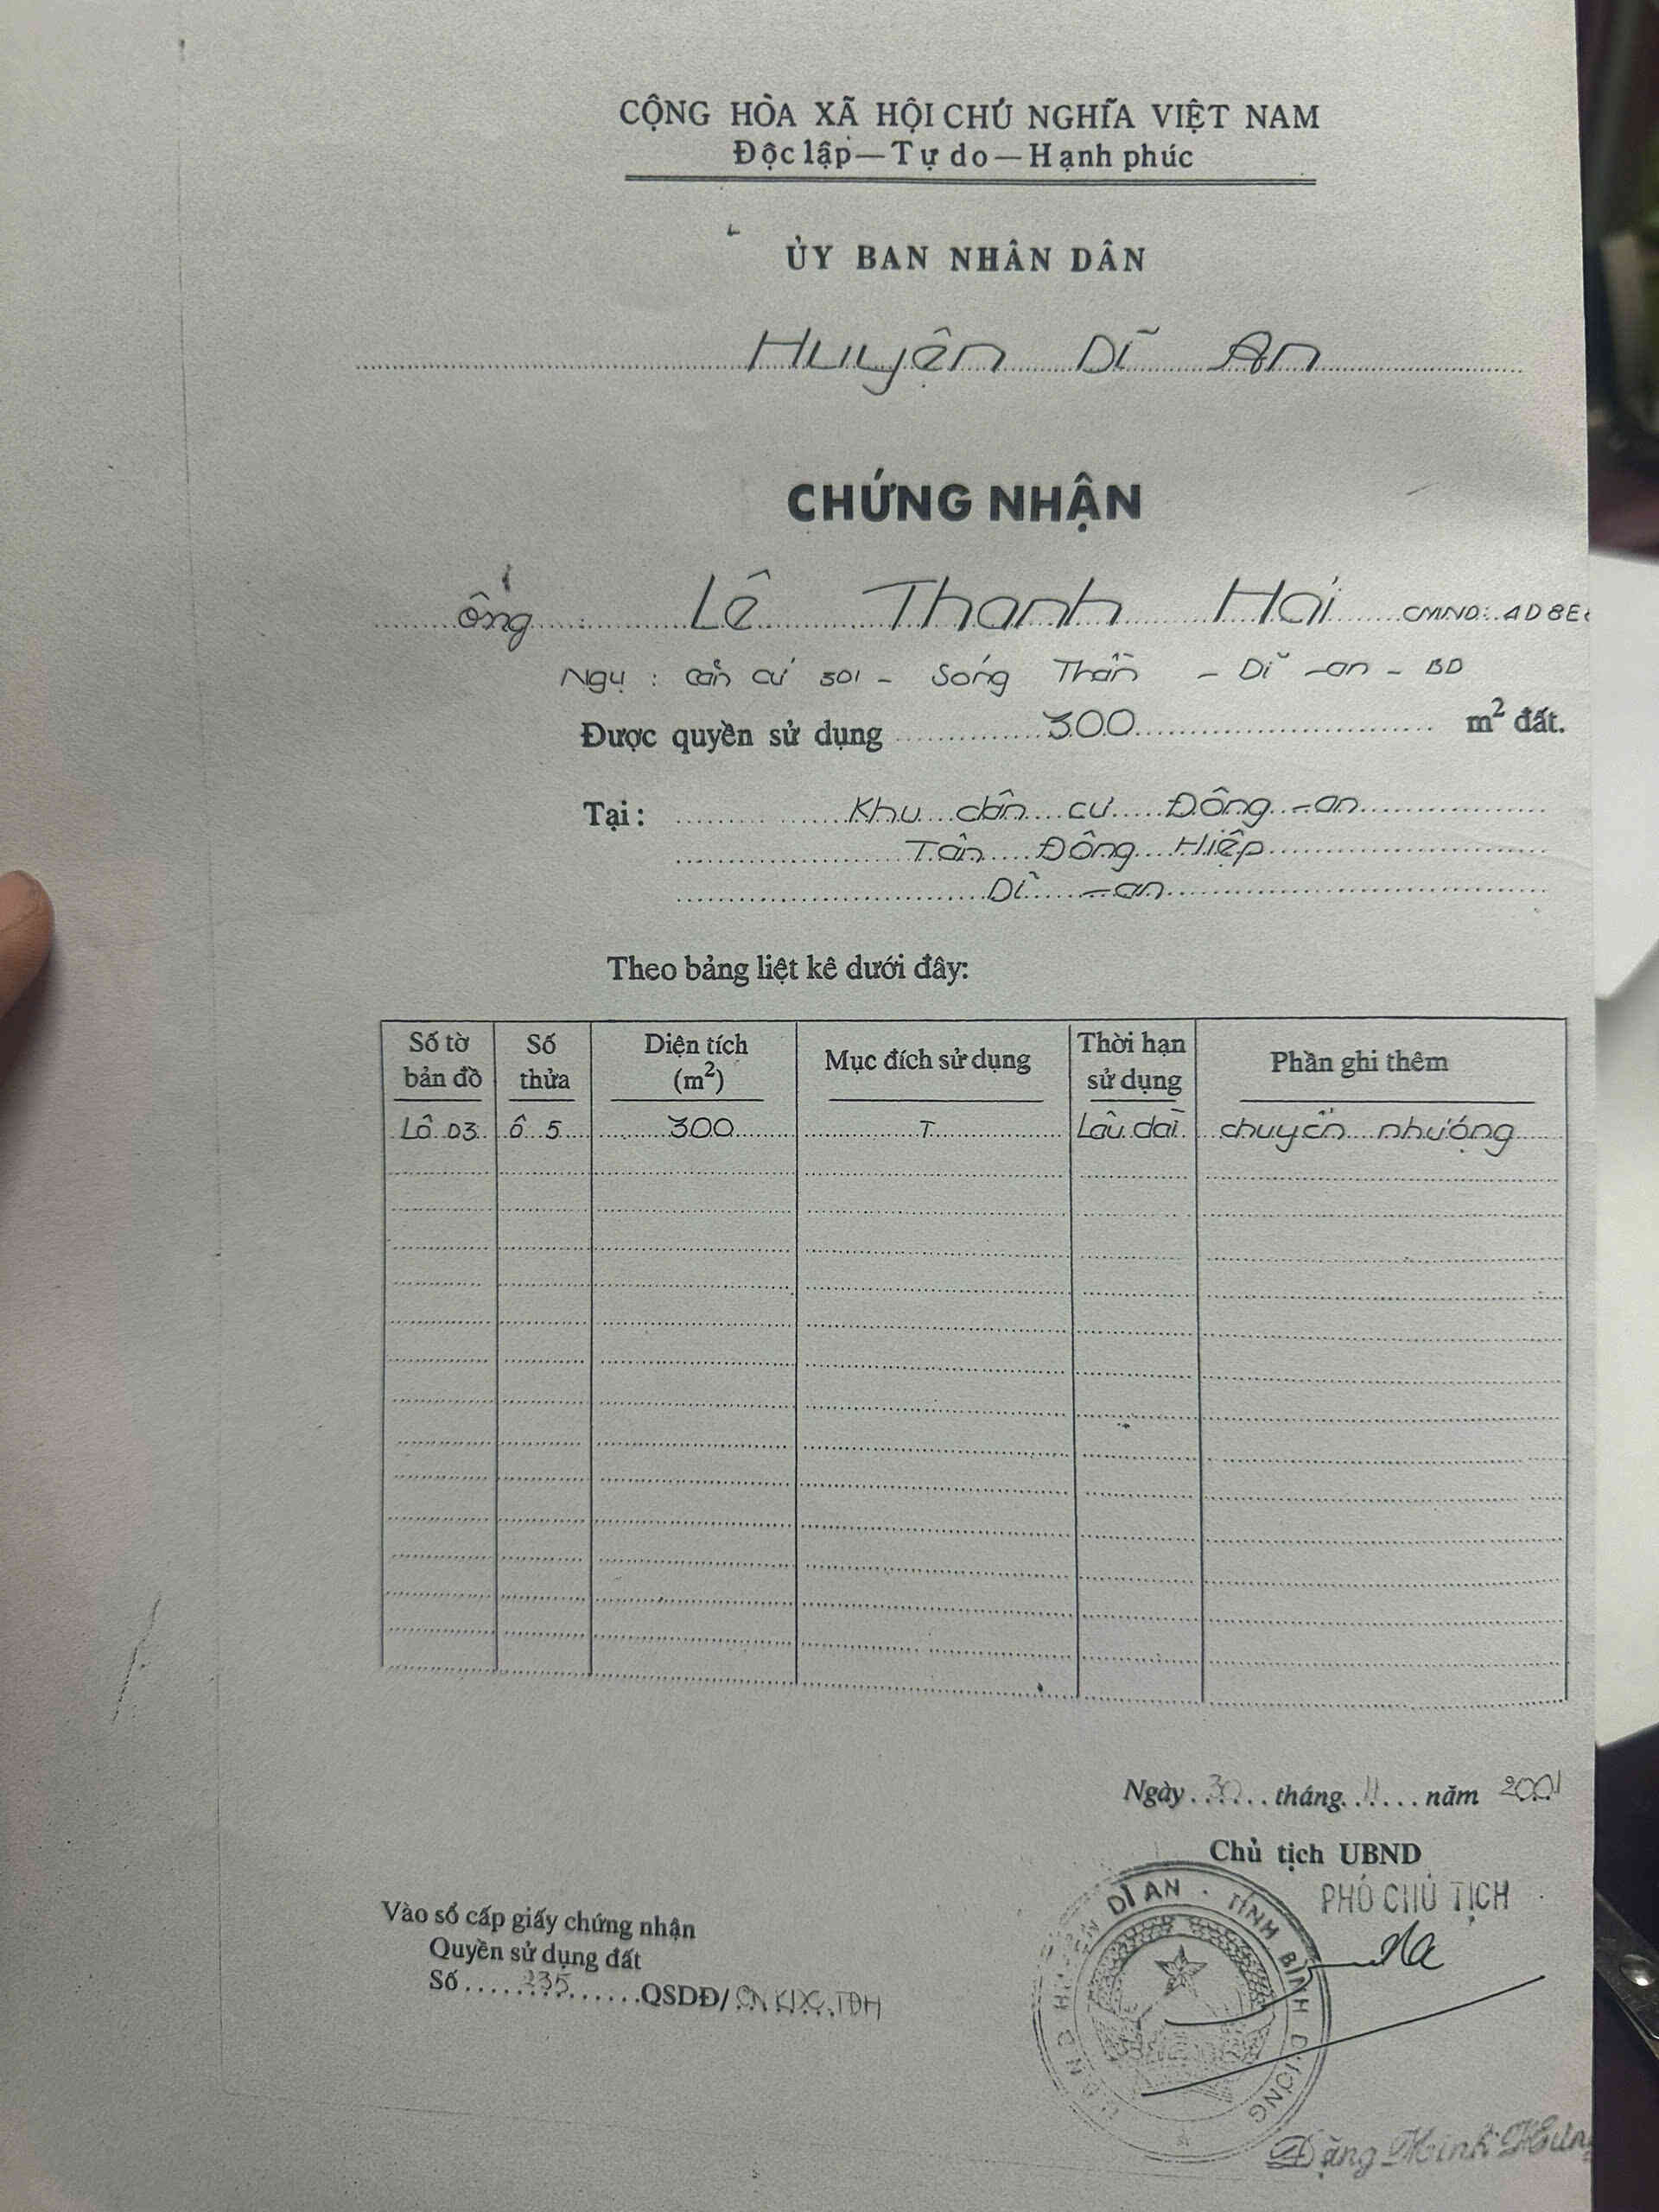 CỘNG HÒA XÃ HỘI CHỦ NGHĨA VIỆT NAM
Độc lập—Tự do—Hạnh phúc
ỦY BAN NHÂN DÂN
Huyện Dĩ An
CHỨNG NHẬN
ông : Lê Thanh Hải CMND: AD8E
Ngụ : Căn cứ 301 - Sóng Thần - Dĩ -an - BD
Được quyền sử dụng 300 m² đất.
Tại : Khu dân cư Đông -an
Tân Đông Hiệp
Dĩ -an
Theo bảng liệt kê dưới đây:
Số tờ bản đồ Số thửa Diện tích (m²) Mục đích sử dụng Thời hạn sử dụng Phần ghi thêm
Lô D3 ô 5 300 T Lâu dài chuyển nhượng
Ngày 30 tháng 11 năm 2001
Chủ tịch UBND
PHÓ CHỦ TỊCH
Vào sổ cấp giấy chứng nhận
Quyền sử dụng đất
Số 235 QSDĐ/
DĨ AN · TỈNH BÌNH DƯƠNG
Đặng Minh Hưng